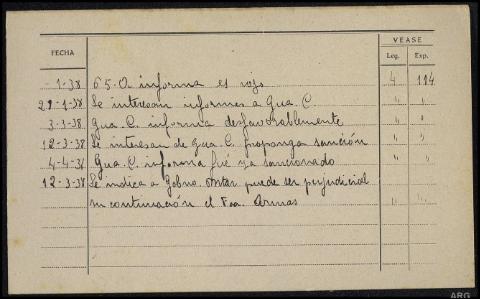 VEASE
FECHA Leg. Exp.
-1-38 6 5.O informa es rojo 4 114
29-1-38 Se interesan informes a Gua. C. " "
3-1-38 Gua. C. informa desfavorablemente " "
12-3-38 Se interesan de Gua. C. proponga sanción " "
4-4-38 Gua. C. informa fué ya sancionado " "
12-3-38 Se indica a Gobno. Mtar puede ser perjudicial
su continuación el Armas " "
ARG